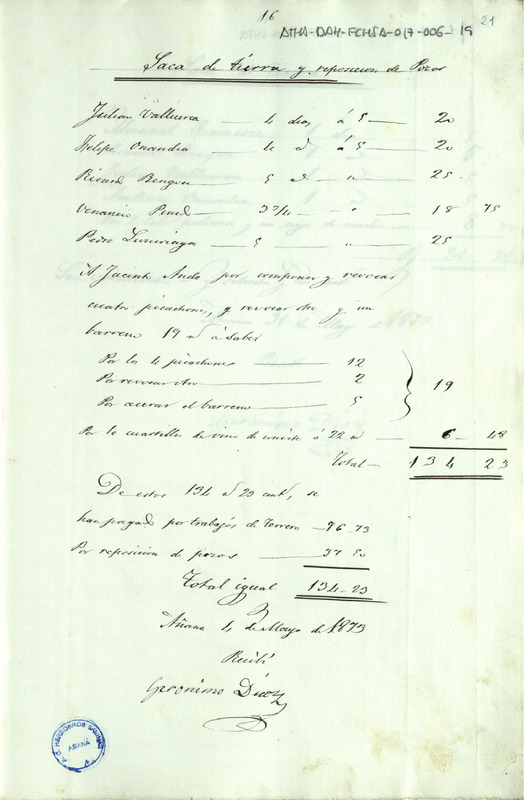 16
21
ATHA-DAH-FCHSA-017-006-19
Saca de tierra y reposicion de Pozos
Julian Valluerca 4 dias á 5 20
Felipe Onandia 4 id á 5 20
Ricardo Bengoa 5 id " 25
Venancio Pinedo 3 3/4 " 18 75
Pedro Luzuriaga 5 " 25
A Jacinto Ando por componer y revocar
cuatro picachones, y revocar otro y un
barreno 19 rs á saber
Por los 4 picachones 12
Por revocar otro 2
Por acerar el barreno 5
19
Por 10 cuartillos de vino de convite á 22 rs 6 48
Total 134 23
De estos 134 rs 23 cents, se
han pagado por trabajos de terrero 96-73
Por reposicion de pozos 37 50
Total igual 134-23
Añana 4 de Mayo de 1873
Recibí
Geronimo Diaz